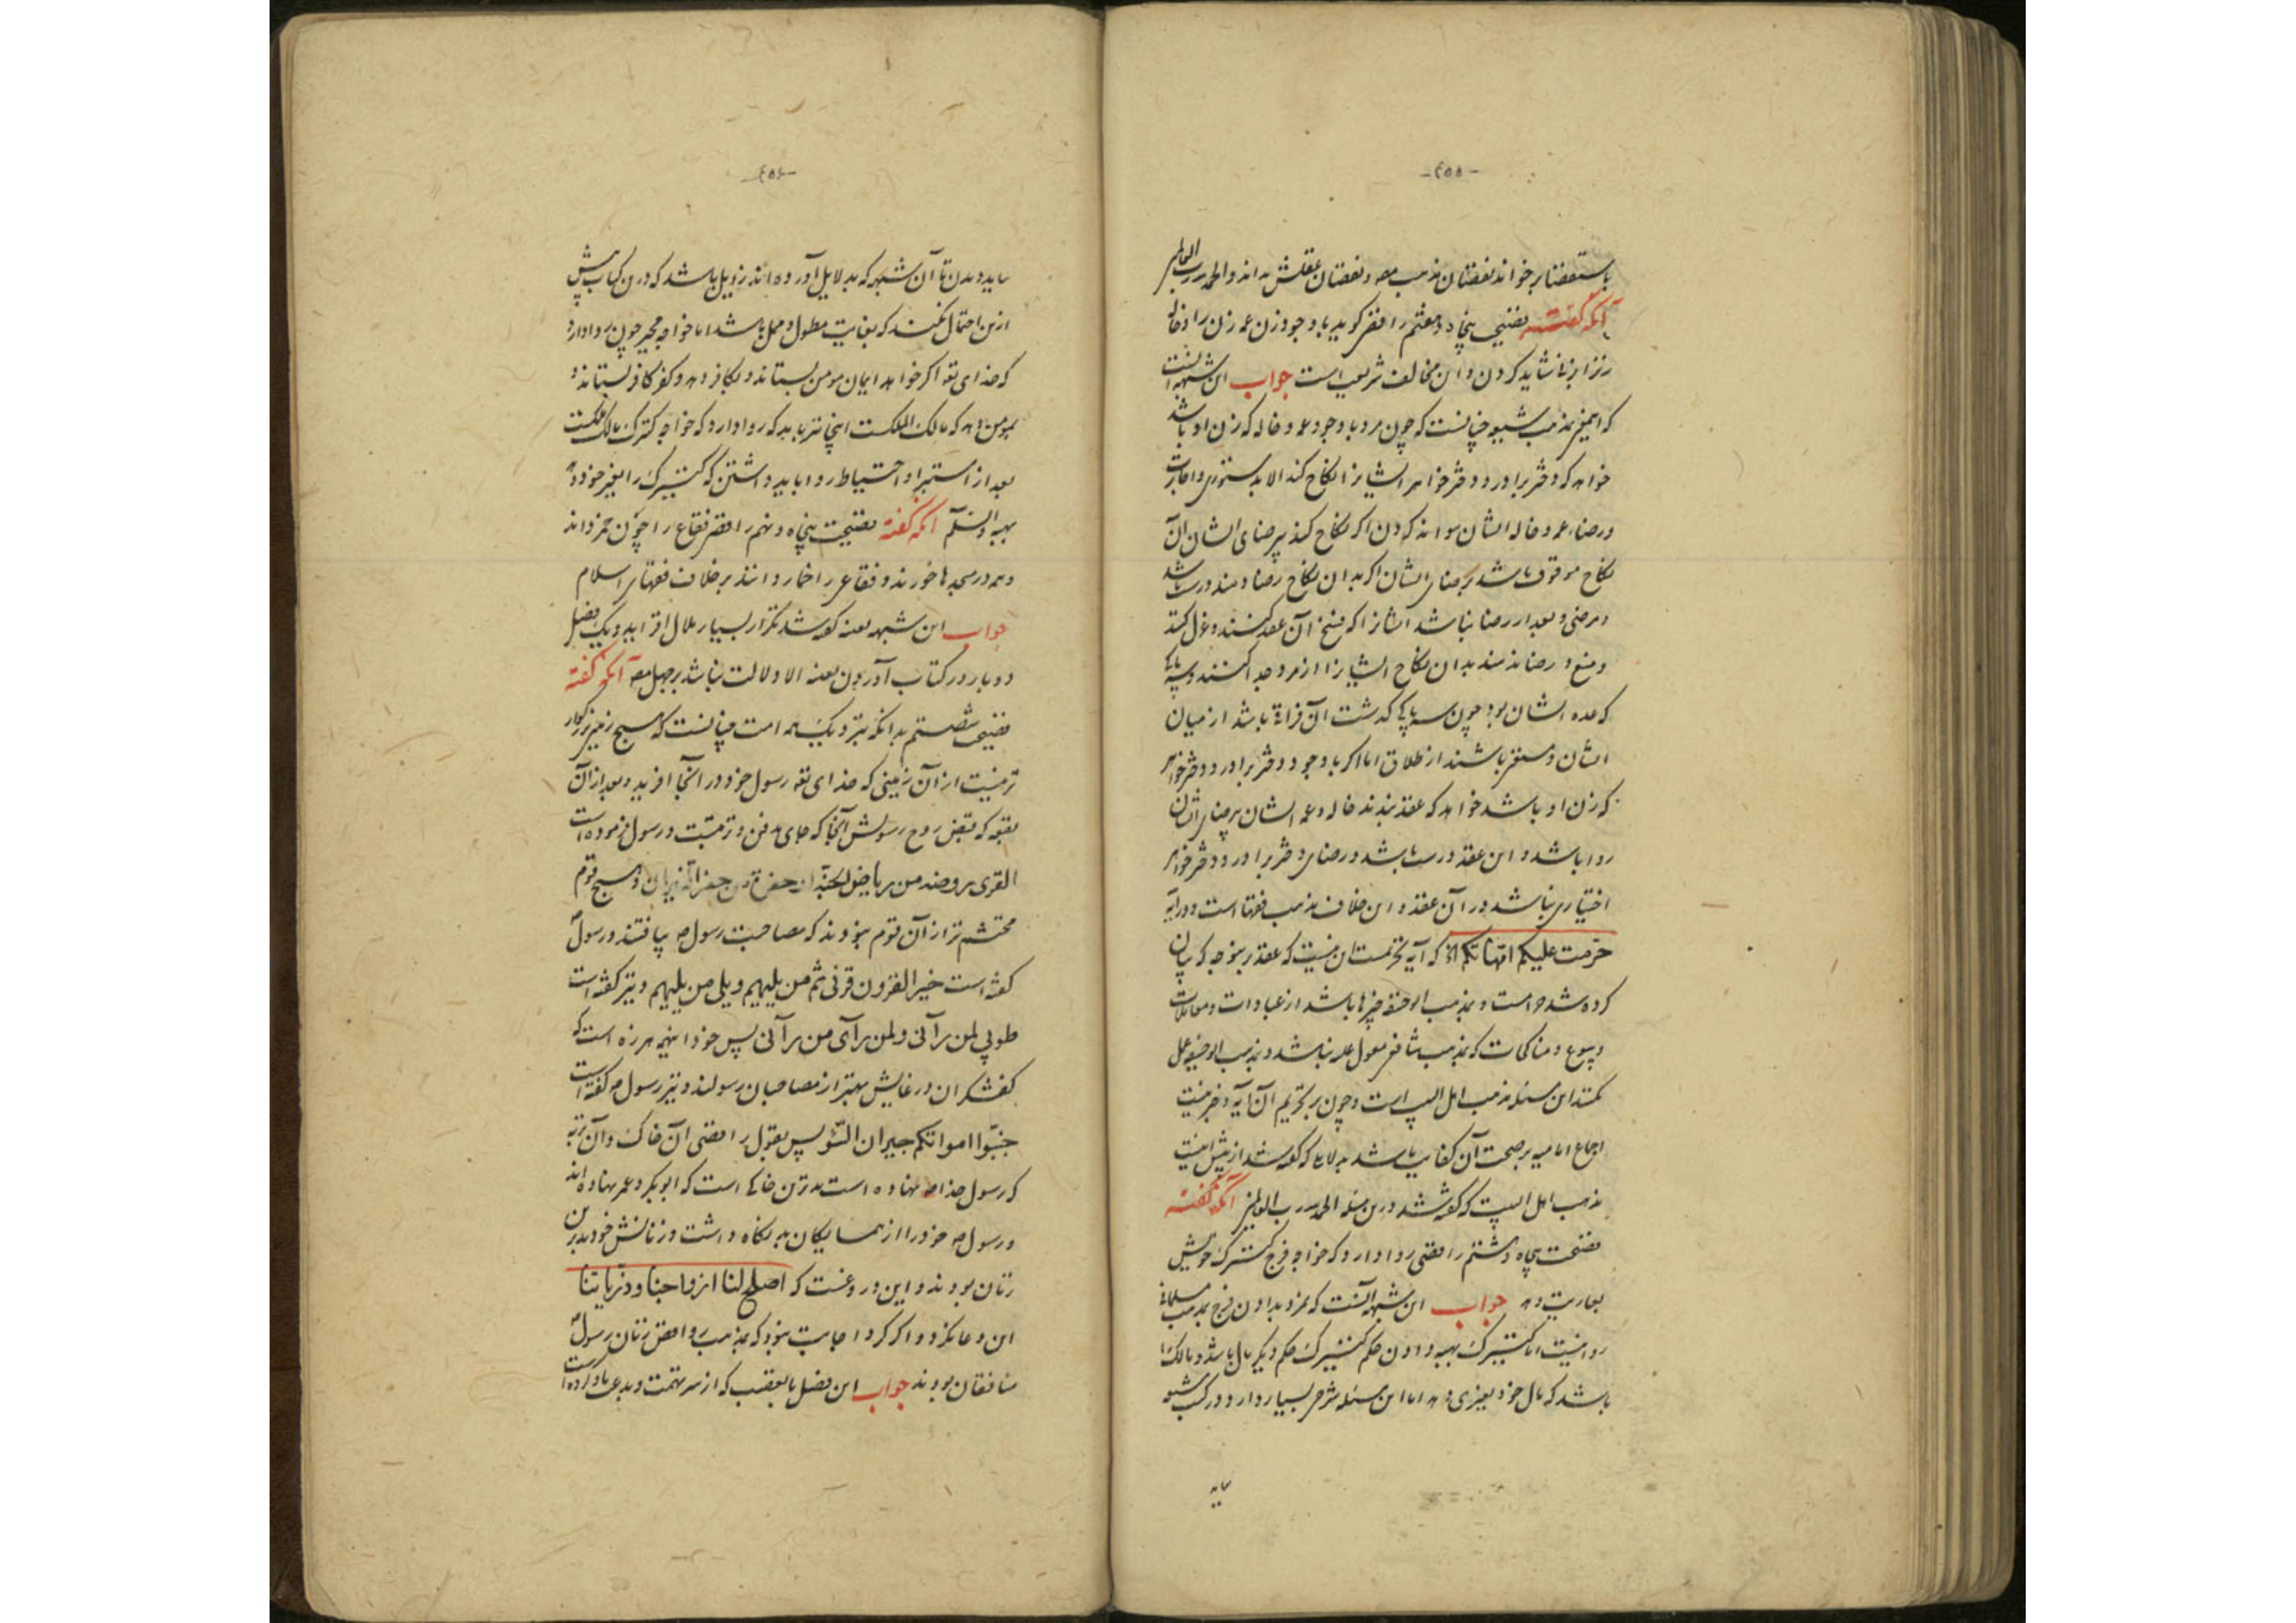 -٤٥٥-
باستعضنا برخواند نقصان مذهب مصه و نقصان عقلش بداند والحمد لله رب العالمین
آنکه گفته فضیحت پنجاه و هفتم رافضی گوید با وجود زن عمه زن را و خاله
زن را بزنا شاید کردن و این مخالف شریعت است جواب این شبهه آنست
که مذهب شیعه چنانست که چون مرد با وجود عمه و خاله که زن او باشد
خواهد که دختر برادر و دختر خواهر ایشانرا نکاح کند الا بدستوری و اجازت
و رضاء عمه و خاله ایشان نتواند کردن اگر نکاح کند برضای ایشان آن
نکاح موقوف باشد برضای ایشان اگر بدان نکاح رضا دهند درست باشد
و مرضی و بعد از رضا نباشد ایشانرا که فسخ آن عقد کنند و عزل کنند
و منع و رضا ندهند بدان نکاح ایشانرا از مرد جدا کنند و سه پاکی
که عده ایشان بود چون سه پاکی گذشت آن فراق باشد از میان
ایشان و مستغنی باشند از طلاق اما اگر با وجود دختر برادر و دختر خواهر
که زن او باشد خواهد که عقد بندد خاله و عمه ایشان برضای ایشان
روا باشد و این عقد درست باشد و رضای دختر برادر و دختر خواهر
اختیاری نباشد در آن عقد و این خلاف مذهب فقها است و در آیه
حرّمت علیکم امّهاتکم الخ که آیه تحریمست این نیست که عقد برین وجه که بیان
کرده شد حرامست و بمذهب ابوحنیفه چیزها باشد از عبادات و معاملات
و بیوع و مناکحات که بمذهب شافعی معول علیه نباشد و بمذهب ابوحنیفه عمل
کنند این مسئله مذهب اهل البیت است و چون بر تحریم آن آیه و خبر نیست
اجماع امامیه بر صحت آن کفایت باشد بدلالتها که گفته شد از پیش اینست
مذهب اهل البیت که گفته شد درین مسئله الحمد لله رب العالمین آنکه گفته
فضیحت پنجاه و هشتم رافضی روا دارد که خواجه فرج کنیزک خویش
بعاریت دهد جواب این شبهه آنست که بمزد دادن فرج بمذهب مسلمانان
روا نیست اما کنیزک بهبه دادن حکم کنیزک حکم دیگر مال باشد و مالک را
باشد که مال خود بغیری دهد اما این مسئله شرحی بسیار دارد و در کتب شیعه
-٤٥٦-
بباید دیدن تا آن شبهه که بدلایل آورده اند زایل باشد که درین کتاب بیش
ازین احتمال نکند که بغایت مطول و ممل باشد اما خواجه مجبر چون روا دارد
که خدای تعالی اگر خواهد ایمان مومن بستاند و بکافر دهد و کفر کافر بستاند و
بمومن دهد که مالک الملکست اینجا نیز باید که روا دارد که خواجه کنیزک مالک ملکست
بعد از استبراء و احتیاط روا باید داشتن که کنیزک را بغیر خود دهد
بهبه والسّلم آنکه گفته فضیحت پنجاه و نهم رافضی فقاع را چون خمر داند
و همه در مسجدها خورند و فقاعی را خمار دانند بر خلاف فقهای اسلام
جواب این شبهه بعینه گفته شد تکرار بسیار ملال افزاید و یک فصل
دو بار در کتاب آوردن بعینه الا دلالت نباشد بر جهل مصه آنکه گفته
فضیحت شصتم بدانکه نزدیک همه امت چنانست که هیچ زمین بزرگوار
تر نیست از آن زمینی که خدای تعالی رسول خود را در آنجا آفرید و بعد از آن
بقعه که قبض روح رسولش آنجا که جای دفن و تربتست و رسول فرموده است
القبر روضة من ریاض الجنّة او حفرة من حفر النیران و هیچ قوم
محتشم تر از آن قوم نبودند که مصاحبت رسول صه یافتند و رسول
گفته است خیر القرون قرنی ثم من یلیهم ویلی من یلیهم و نیز گفته است
طوبی لمن رآنی ولمن رآی من رآنی پس خود اینهمه هرزه است که
کفشگران در غایش بهتر از مصاحبان رسولند و نیز رسول صه گفته است
جنّبوا امواتکم جیران السّوء پس بقول رافضی آن خاک و آن تربه
که رسول خدا صه نهاده است بدترین خاکی است که ابوبکر و عمر نهاده اند
و رسول صه خود را از همسایگان بد نگاه داشت و زنانش خود بدترین
زنان بودند و این دروغست که اصلح لنا ازواجنا و ذریاتنا
این دعا نکرد و اگر کرد اجابت نبود که بمذهب روافض زنان رسول
منافقان بودند جواب این فصل با تعقب که از سر تهمت و بدعت یاد کرده است